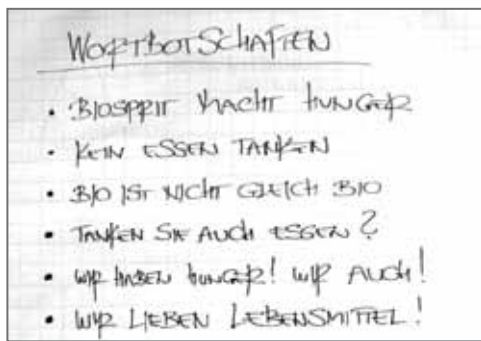 WORTBOTSCHAFTEN
• BIOSPRIT MACHT HUNGER
• KEIN ESSEN TANKEN
• BIO IST NICHT GLEICH BIO
• TANKEN SIE AUCH ESSEN?
• WIR HABEN HUNGER! WIR AUCH!
• WIR LIEBEN LEBENSMITTEL!